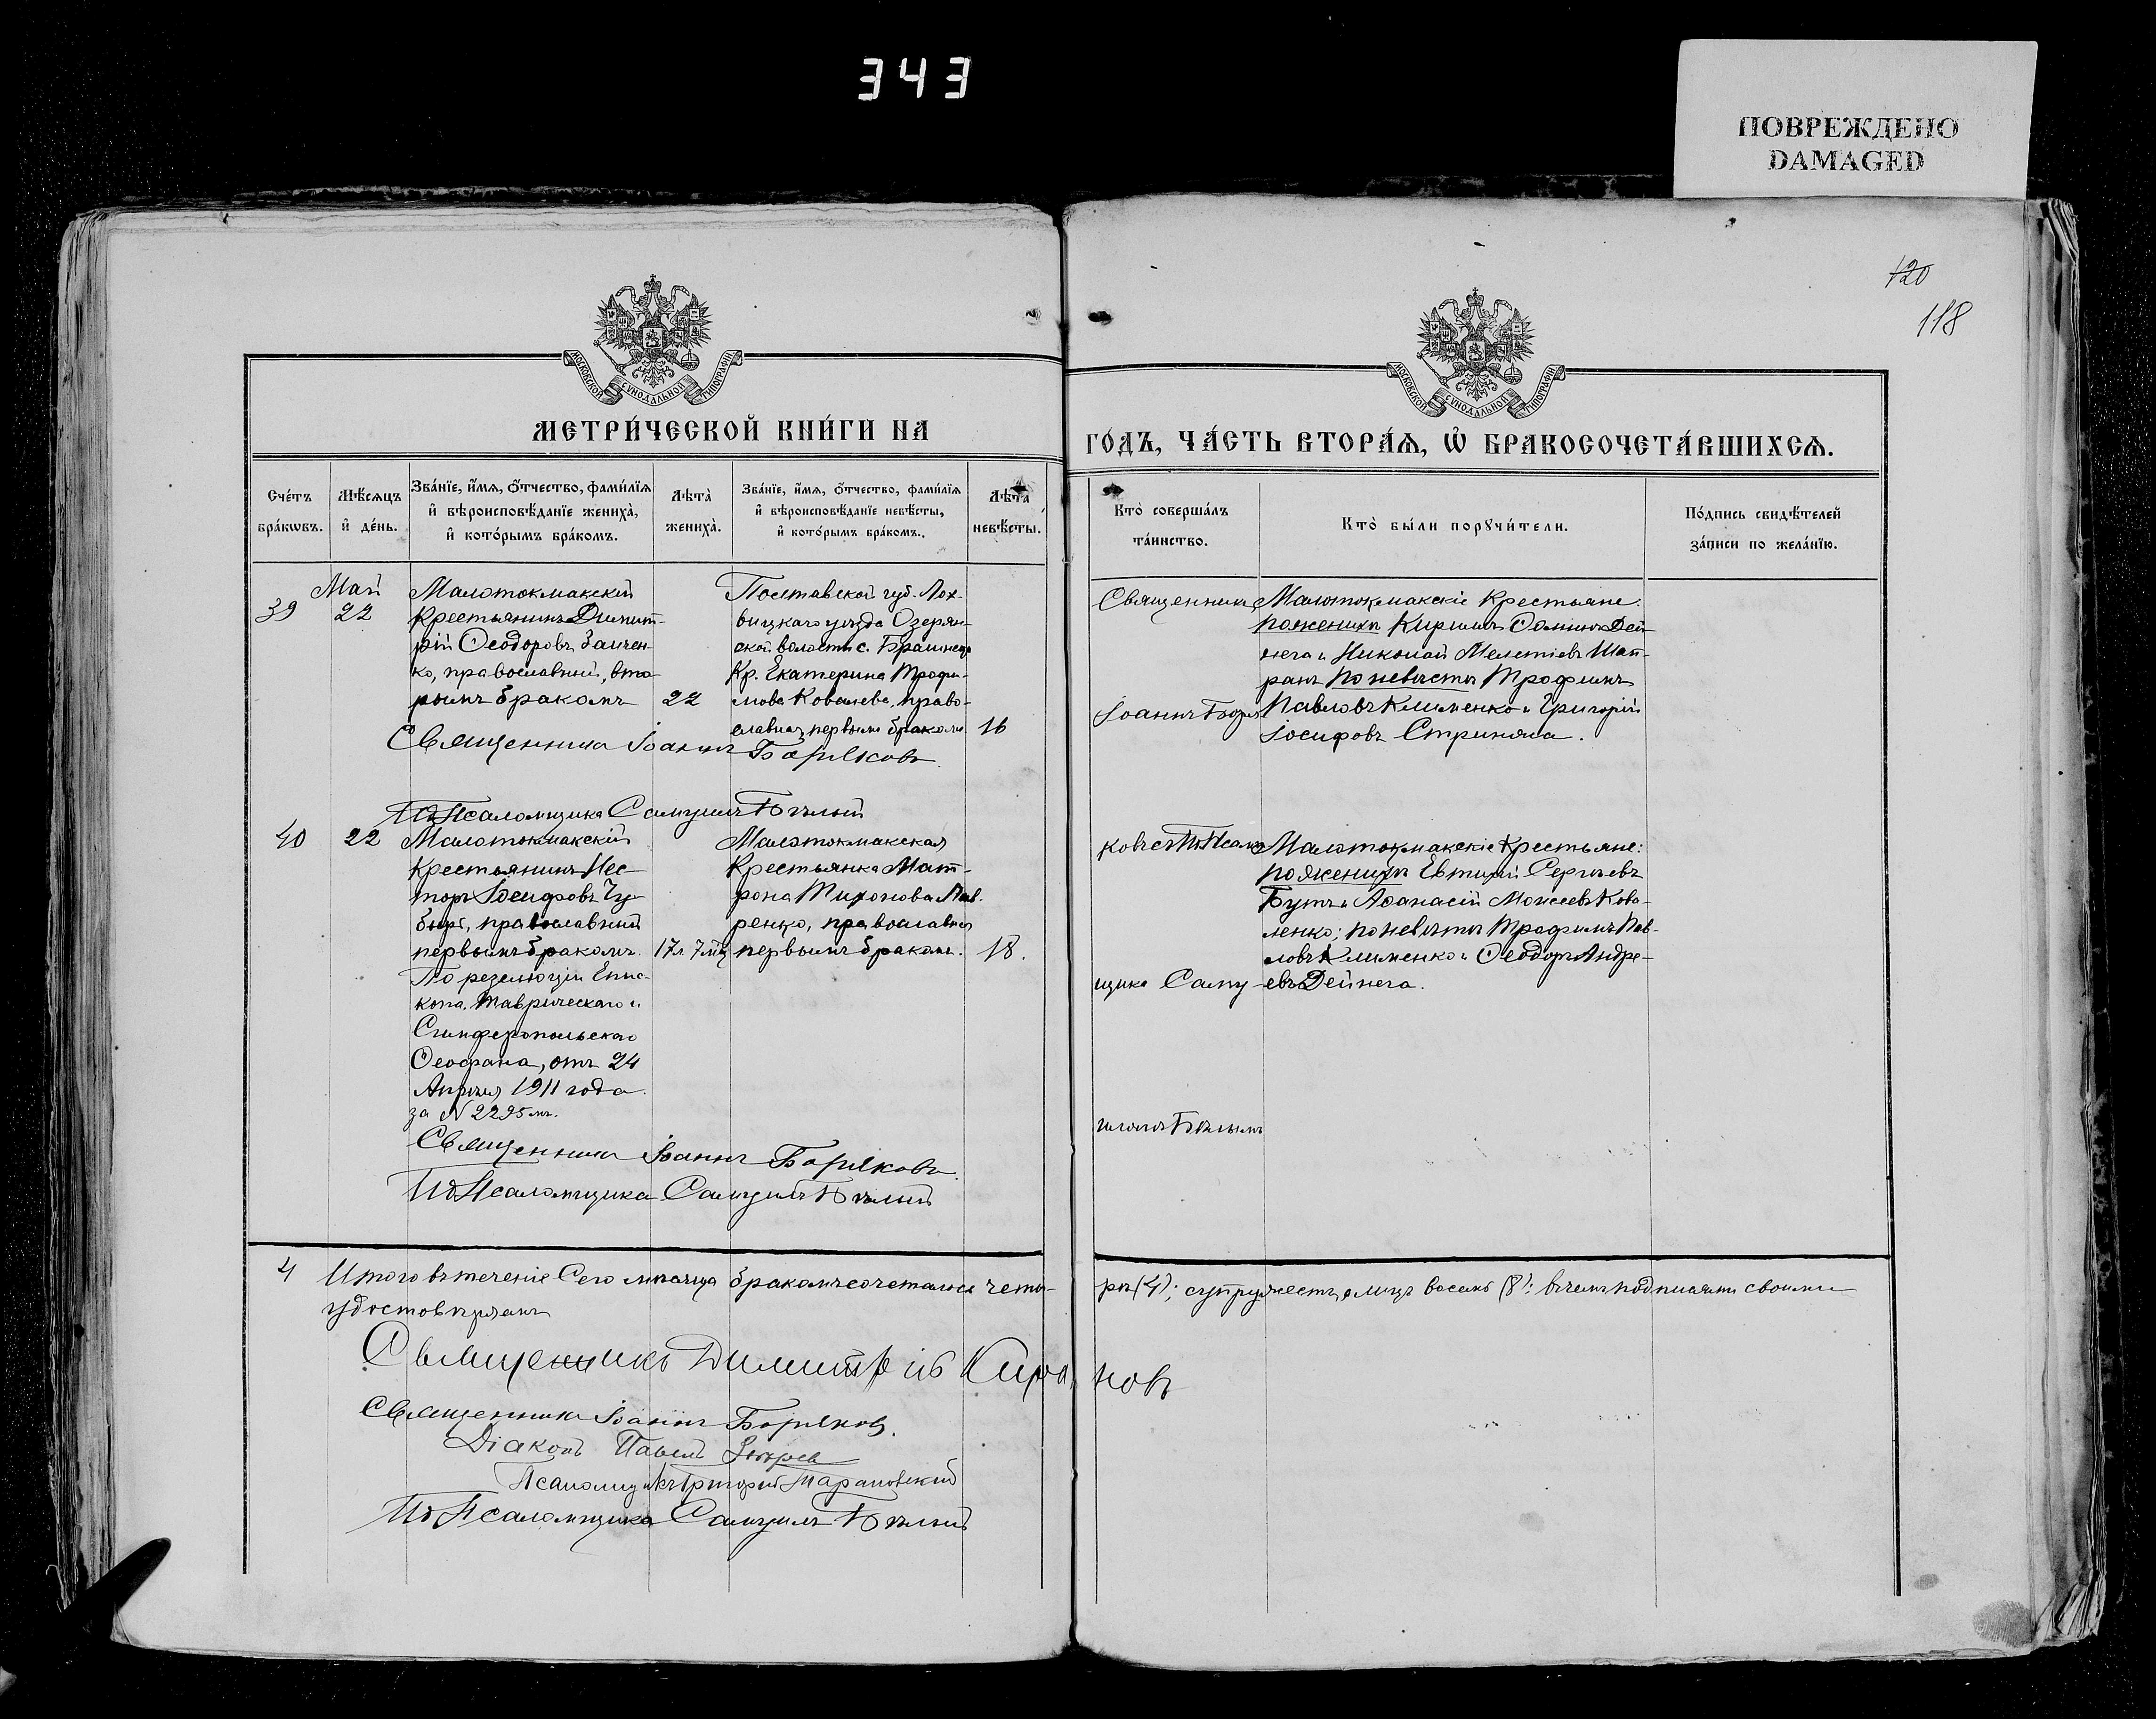 343
ПОВРЕЖДЕНО
DAMAGED
120
118
МОСКОВСКОЙ СѴНОДАЛЬНОЙ ТИПОГРАФІИ
МОСКОВСКОЙ СѴНОДАЛЬНОЙ ТИПОГРАФІИ
МЕТРИ́ЧЕСКОЙ КНИ́ГИ НА
ГО́ДЪ, ЧА́СТЬ ВТОРА́Ѧ, Ѽ БРАКОСОЧЕТА́ВШИХСѦ.
Сче́тъ бра́кѡвъ.
Мѣ́сѧцъ и҆ де́нь.
Зва́нїе, и҆́мѧ, о҆́тчество, фами́лїѧ
и҆ вѣроисповѣ́данїе жениха̀,
и҆ кото́рымъ бра́комъ.
Лѣта̀ жениха̀.
Зва́нїе, и҆́мѧ, о҆́тчество, фами́лїѧ
и҆ вѣроисповѣ́данїе невѣ́сты,
и҆ кото́рымъ бра́комъ.
Лѣта̀ невѣ́сты.
Кто̀ соверша́лъ
та́инство.
Кто̀ бы́ли порꙋчи́тели.
По́дпись свидѣ́телей
за́писи по жела́нїю.
Май
39 22
Малотокмакскій
крестьянинъ Димит-
рій Ѳеодоровъ Заичен-
ко, православный, вто-
рымъ бракомъ 22
Полтавской губ. Лох-
вицкаго уѣзда Озерян-
ской волости с.
Кр. Екатерина Трофи-
мова Ковалева, право-
славная, первымъ бракомъ 16
Священникъ Іоаннъ Боряковъ
ИдПсаломщика Самуилъ Бѣлый
Священникъ
Іоаннъ Боря
Малотокмакскіе крестьяне:
по женихѣ Кириллъ Ѳоминъ Дей-
нега и Николай Мелетіевъ Шап-
ранъ по невѣстѣ Трофимъ
Павловъ Клименко и Григорій
Іосифовъ Стриняка.
40 22
Малотокмакскій
крестьянинъ Нес-
торъ Іосифовъ Чу-
бырь, православный
первымъ бракомъ. 17 л. 7 мц
По резолюціи Епис-
копа Таврическаго и
Симферопольскаго
Ѳеофана, отъ 24
Апрѣля 1911 года
за № 2295 мъ.
Малотокмакская
крестьянка Мат-
рона Тихонова Лав-
ренко, православная
первымъ бракомъ. 18.
Священникъ Іоаннъ Боряковъ
ИдПсаломщика Самуилъ Бѣлый
ковъ съ ИдПсалом
щика Саму-
иломъ Бѣлымъ
Малотокмакскіе крестьяне:
по женихѣ Евтихій Сергѣевъ
Бутъ и Аѳанасій Моисеевъ Кова-
ленко; по невѣстѣ Трофимъ Пав-
ловъ Клименко и Ѳеодоръ Андре-
евъ Дейнега.
4 Итого въ теченіе сего мѣсяца бракомъ сочеталось четы-
ре (4); супружествъ, а лицъ восемь (8): въ чемъ подписями своими
удостовѣряемъ
Священникъ Димитрій
Священникъ Іоаннъ Боряковъ.
Діаконъ Павелъ
Псаломщикъ Григорій Тарановскій
ИдПсаломщика Самуилъ Бѣлый